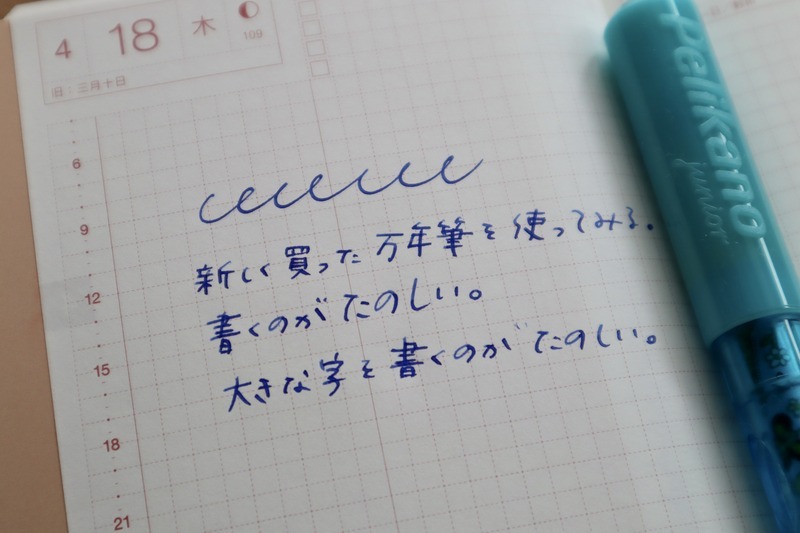 4 18 木
199
旧:三月十日
6
9
12
15
18
21
新しく買った万年筆を使ってみる。
書くのがたのしい。
大きな字を書くのがたのしい。
Pelikano
junior